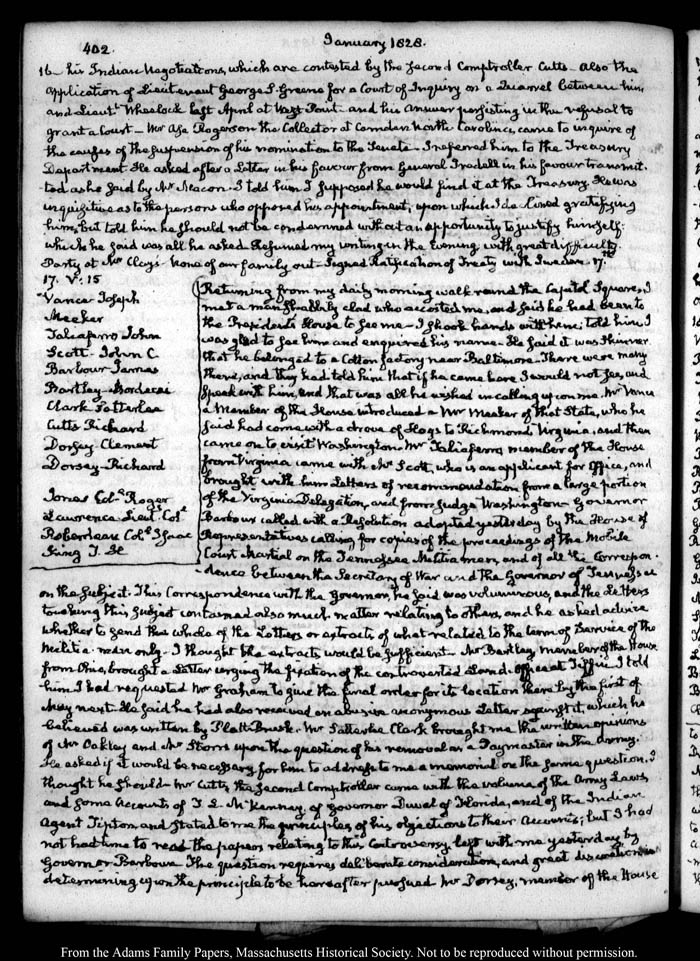 402.
January 1828.
16— his Indian Negotiations, which are contested by the second Comptroller Cutts— Also the
application of Lieutenant George S. Greene for a Court of Inquiry on a Quarrel between him
and Lieutt. Wheelock last April at West Point— and his answer persisting in the refusal to
grant a Court— Mr Asa Rogerson the Collector at Camden North Carolina, came to inquire of
the causes of the suspension of his nomination to the Senate— I referred him to the Treasury
Department. He asked after a Letter in his favour from General Iredell in his favour transmit-
ted as he said by Mr Macon— I told him I supposed he would find it at the Treasury. He was
inquisitive as to the persons who opposed his appointment, upon which I declined gratifying
him, but told him he should not be condemned without an opportunity to justify himself:
which he said was all he asked. Resumed my writing in the Evening with great difficulty.
Party at Mrs Clay's— None of our family out— Signed Ratification of Treaty with Sweden. 17th
17. V: 15
Vance Joseph
Meeker
Taliaferro John
Scott. John C.
Barbour James
Bartley Mordecai
Clark Satterlee
Cutts Richard
Dorsey Clement
Dorsey Richard
Jones Col. Roger
Lawrence Lieut Col.
Roberdeau Col. Isaac
King
Returning from my daily morning walk round the Capitol Square, I
met a man shabbily clad who accosted me, and said he had been to
the President's House to see me— I shook hands with him; told him I
was glad to see him and enquired his name— He said it was
that he belonged to a Cotton factory near Baltimore— There were many
there, and they had told him that if he came here I would not see, and
speak with him, and that was all he wished in calling upon me. Mr Vance
a Member of the House introduced a Mr Meeker of that State, who he
said had come with a drove of Hogs to Richmond Virginia, and then
came on to visit Washington. Mr Taliaferro, member of the House
from Virginia came with Mr Scott, who is an applicant for Office, and
brought with him Letters of recommendation from a large portion
of the Virginia Delegation, and from Judge Washington— Governor
Barbour called with a Resolution adopted yesterday by the House of
Representatives calling for copies of the proceedings of the Mobile
Court Martial on the Tennessee Militia men, and of all the Correspon-
dence between the Secretary of War and the Governor of Tennessee
on the subject. This Correspondence with the Governor, he said was voluminous, and the Letters
touching this subject contained also much matter relating to others, and he asked advice
whether to send the whole of the Letters or extracts of what related to the term of service of the
Militia-men only. I thought the extracts would be sufficient— Mr Bartley, member of the House
from Ohio, brought a Letter urging the fixation of the controverted Land-Office at Tiffin. I told
him I had requested Mr Graham to give the final order for its location there by the first of
May next. He said he had also received an abusive anonymous Letter against it, which he
believed was written by Platt Brush. Mr Satterlee Clark brought me the written opinions
of Mr Oakley and Mr Storrs upon the question of his removal as a Paymaster in the Army.
He asked if it would be necessary for him to address to me a memorial on the same question. I
thought he should— Mr Cutts, the second Comptroller came with the volume of the Army Laws,
and some Accounts of T. L. McKenney, of Governor Duval of Florida, and of the Indian
Agent Tipton and stated to me the principles of his objections to their Accounts; but I had
not had time to read the papers relating to this Controversy left with me yesterday by
Governor Barbour. The question requires deliberate consideration, and great discretion in
determining upon the principle to be hereafter pursued. Mr Dorsey, member of the House
From the Adams Family Papers, Massachusetts Historical Society. Not to be reproduced without permission.